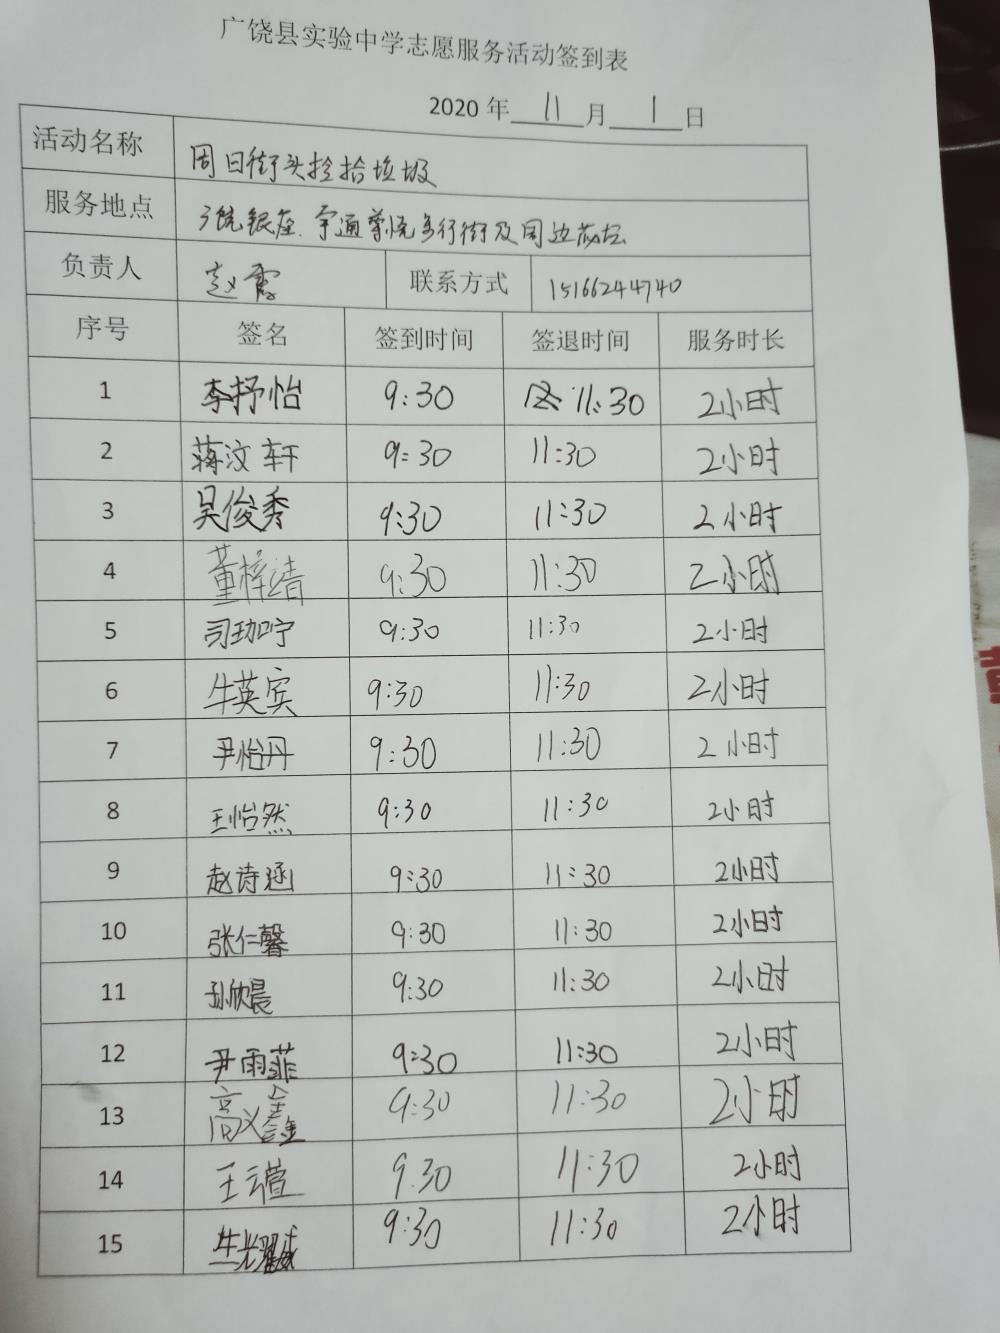 广饶县实验中学志愿服务活动签到表
2020 年 11 月 1 日
活动名称 周日街头捡拾垃圾
服务地点 广饶银座、宇通尊悦步行街及周边花坛
负责人 赵霞 联系方式 15166244740
序号 签名 签到时间 签退时间 服务时长
1 李抒怡 9:30 11:30 2小时
2 蒋汶轩 9:30 11:30 2小时
3 吴俊秀 9:30 11:30 2小时
4 董梓靖 9:30 11:30 2小时
5 司珈咛 9:30 11:30 2小时
6 牛英宾 9:30 11:30 2小时
7 尹怡丹 9:30 11:30 2小时
8 王怡然 9:30 11:30 2小时
9 赵诗涵 9:30 11:30 2小时
10 张仁馨 9:30 11:30 2小时
11 孙欣晨 9:30 11:30 2小时
12 尹雨菲 9:30 11:30 2小时
13 高义鑫 9:30 11:30 2小时
14 王云萱 9:30 11:30 2小时
15 9:30 11:30 2小时